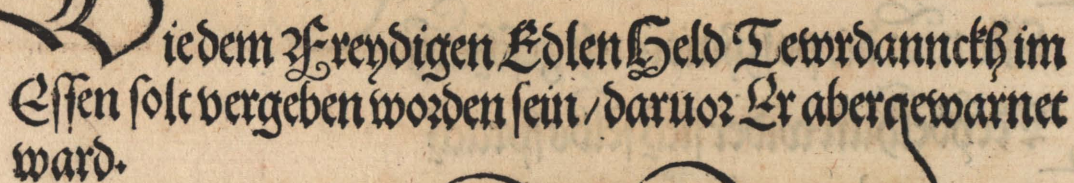 Wie dem Freydigen Edlen Held Tewrdannckh im
Essen solt vergeben worden sein / daruor Er aber gewarnet
ward.